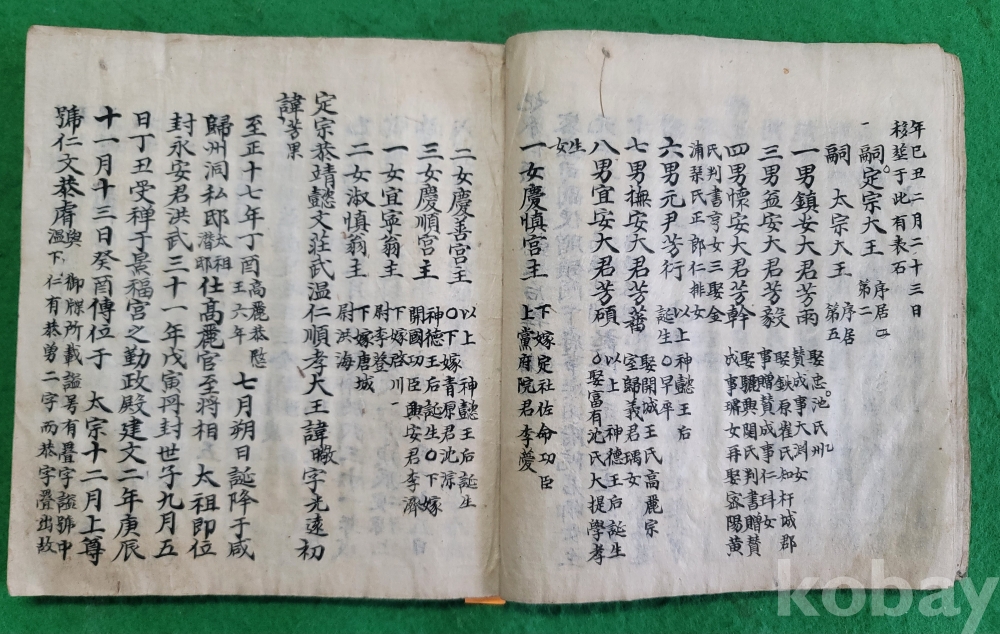 年己丑二月二十三日
移葬于此有表石
一嗣定宗大王 序居二 第二
嗣 太宗大王 序居 第五
一男鎮安大君芳雨 娶忠池氏州
贊成事大淵女
三男益安大君芳毅 娶鉄原崔氏知杆城郡
事贈贊成事仁㺶女
四男懷安大君芳幹 娶驪興閔氏判書贈贊
成事璿女再娶密陽黄
氏判書亨女三娶金
浦琴氏正郎仁排女
六男元尹芳行 以上神懿王后
誕生○早卒
七男撫安大君芳蕃 娶開城王氏高麗宗
室歸義君瑀女
八男宜安大君芳碩 以上 神德王后誕生
○娶富有沈氏大提學孝
生女
一女慶慎宮主 下嫁定社佐命功臣
上黨府院君李薆
二女慶善宮主 以上 神懿王后誕生
○下嫁青原君沈淙
三女慶順宮主 神德王后誕生○下嫁
開國功臣興安君李濟
一女宜寧翁主 下嫁啓川
尉李登
二女淑慎翁主 下嫁唐城
尉洪海
定宗恭靖懿文莊武温仁順孝大王諱曔字光遠初
諱芳果
至正十七年丁酉 高麗恭愍王六年 七月朔日誕降于咸
歸州洞私邸 太祖潛邸 仕高麗官至將相 太祖即位
封永安君洪武三十一年戊寅丹封世子九月五
日丁丑受禪于景福宮之勤政殿建文二年庚辰
十一月十三日癸酉傳位于 太宗十二月上尊
號仁文恭睿 御牒所載謚号有疊字謚號中
温下仁有恭勇二字而恭字疊出故
kobay